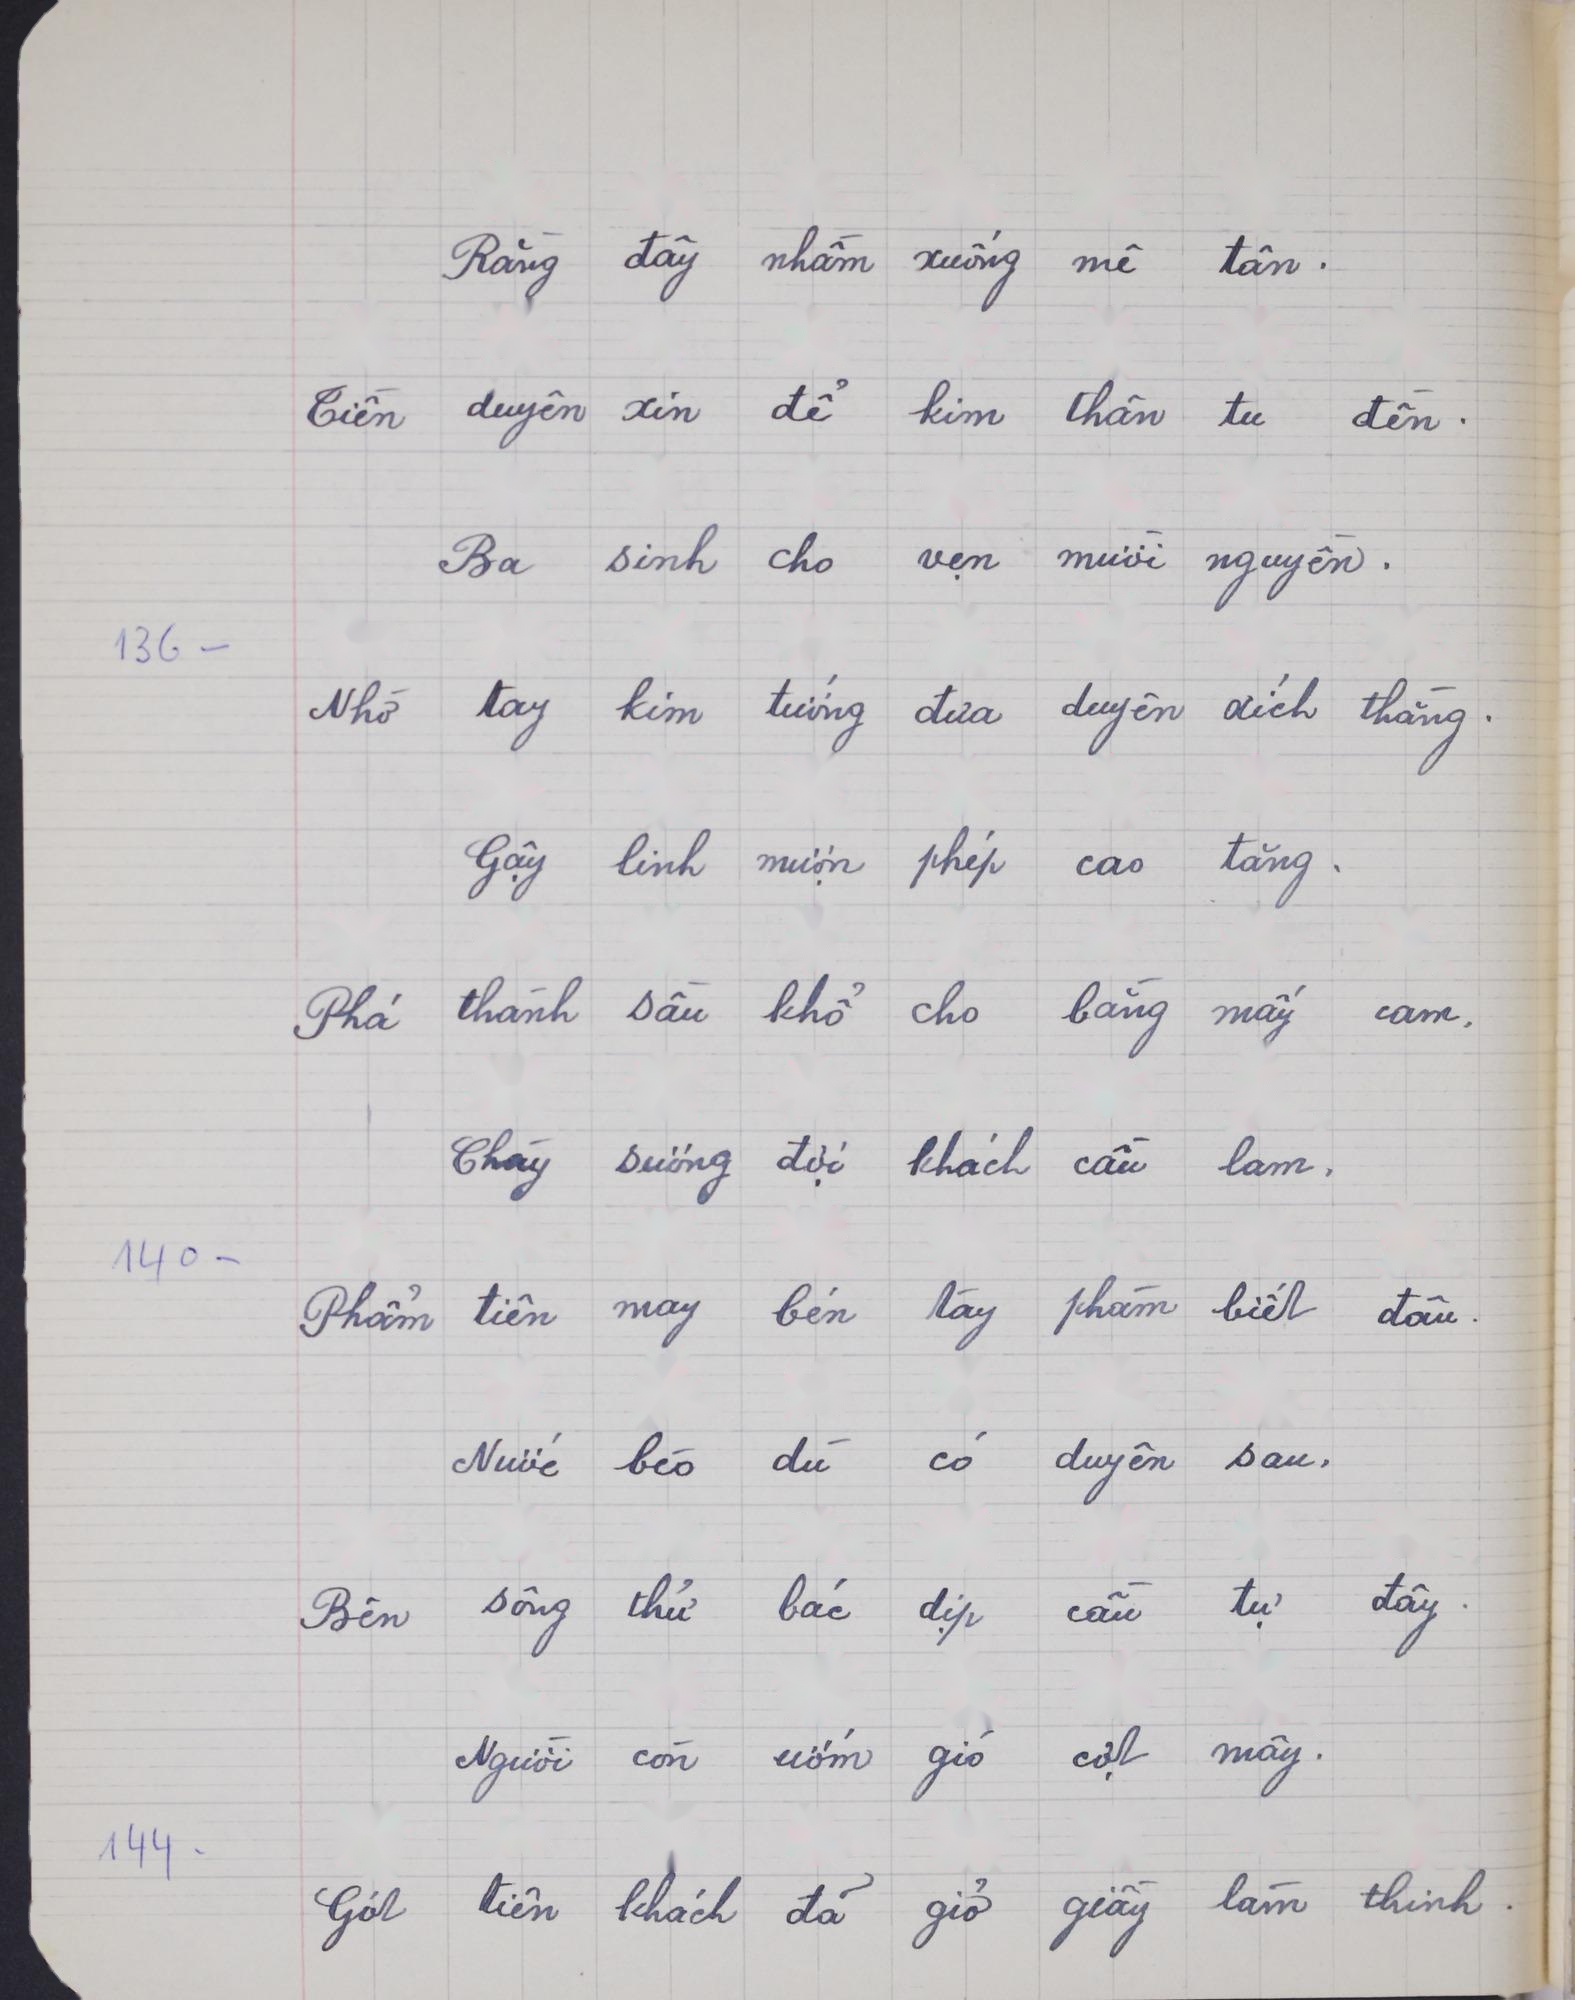 Rằng đây nhầm xuống mê tân.
Tiền duyên xin để kim thân tu đền.
Ba sinh cho vẹn mười nguyền.
136 -
Nhờ tay kim tướng đưa duyên xích thằng.
Gậy linh mượn phép cao tăng.
Phá thành sầu khổ cho bằng mấy cam.
Chày sương đợi khách cầu lam.
140 -
Phẩm tiên may bén tay phàm biết đâu.
Nước bèo dù có duyên sau.
Bên sông thử bắc dịp cầu tự đây.
Người còn ướm gió cợt mây.
144 -
Gót tiên khách đã giở giầy làm thinh.